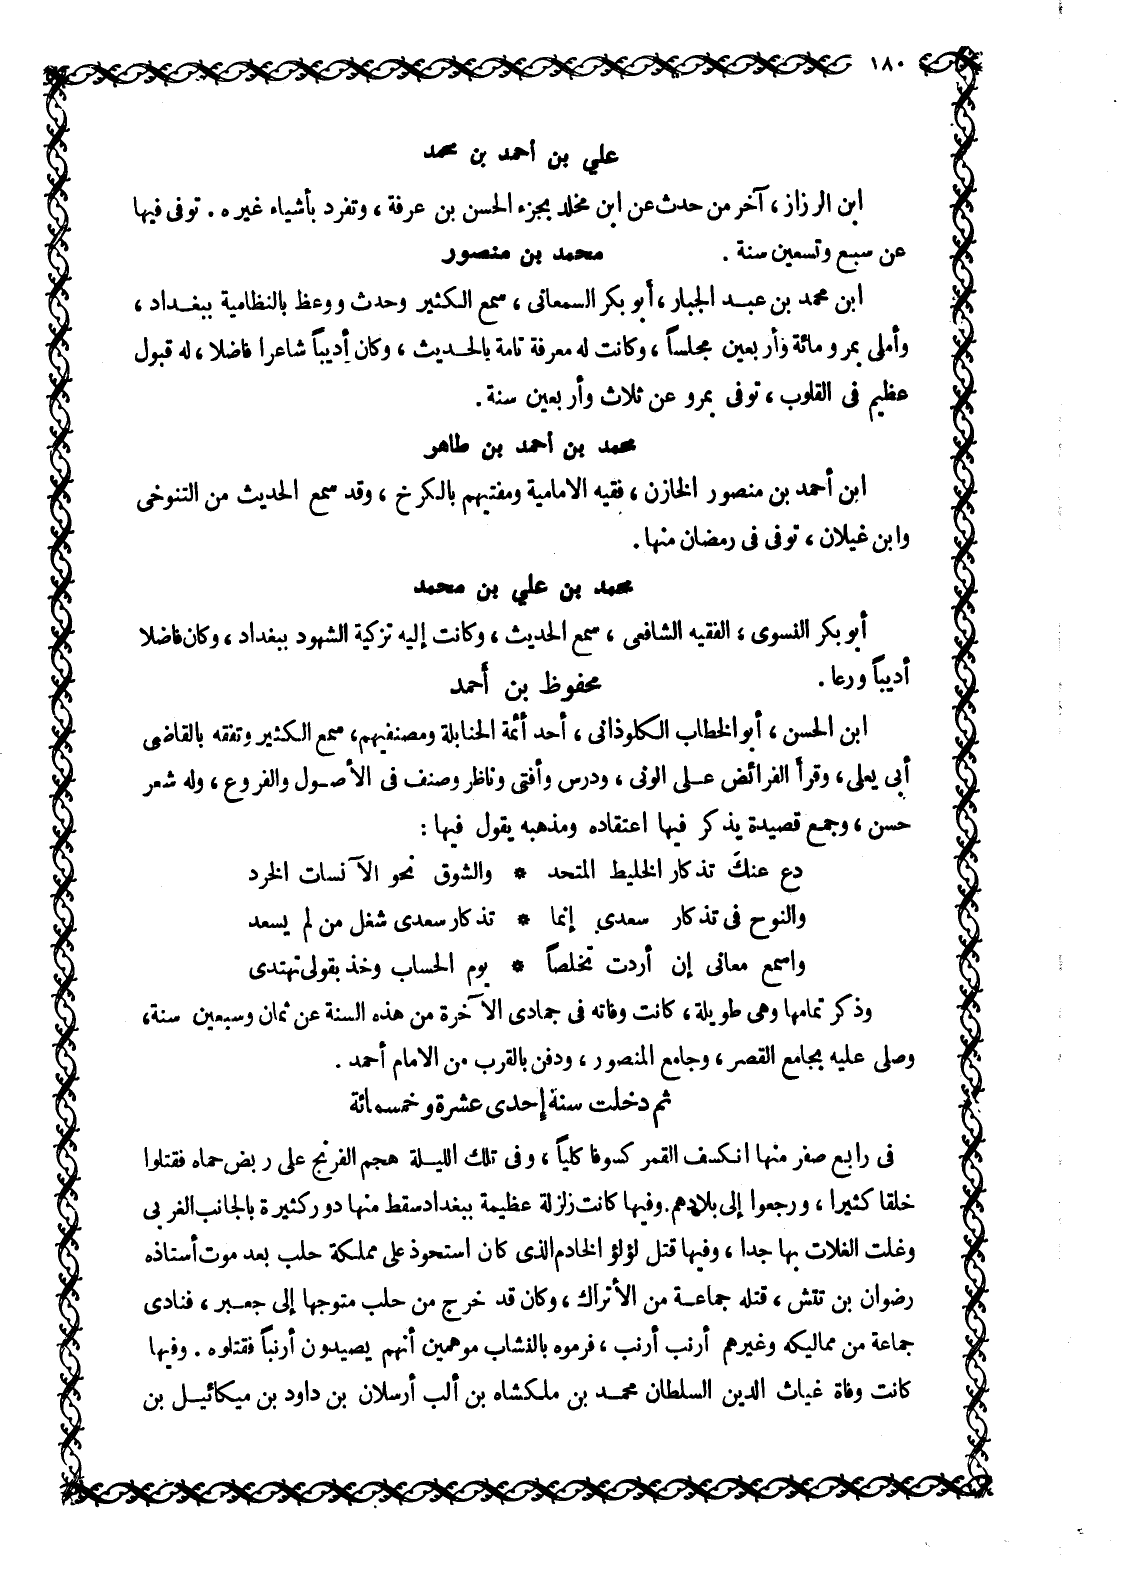 ١٨٠
علي بن أحمد بن محمد
ابن الرزاز ، آخر من حدث عن ابن مخلد بجزء الحسن بن عرفة ، وتفرد بأشياء غيره . توفى فيها
عن سبع وتسعين سنة . محمد بن منصور
ابن محمد بن عبد الجبار ، أبو بكر السمعانى ، سمع الكثير وحدث ووعظ بالنظامية ببغداد ،
وأملى بمرو مائة وأربعين مجلساً ، وكانت له معرفة تامة بالحديث ، وكان أديباً شاعرا فاضلا ، له قبول
عظيم فى القلوب ، توفى بمرو عن ثلاث وأربعين سنة .
محمد بن أحمد بن طاهر
ابن أحمد بن منصور الخازن ، فقيه الامامية ومفتيهم بالكرخ ، وقد سمع الحديث من التنوخى
وابن غيلان ، توفى فى رمضان منها .
محمد بن علي بن محمد
أبو بكر النسوى ، الفقيه الشافعى ، سمع الحديث ، وكانت إليه تزكية الشهود ببغداد ، وكان فاضلا
أديباً ورعا . محفوظ بن أحمد
ابن الحسن ، أبو الخطاب الكلوذانى ، أحد أئمة الحنابلة ومصنفيهم ، سمع الكثير وتفقه بالقاضى
أبى يعلى ، وقرأ الفرائض على الونى ، ودرس وأفتى وناظر وصنف فى الأصول والفروع ، وله شعر
حسن ، وجمع قصيدة يذكر فيها اعتقاده ومذهبه يقول فيها :
دع عنكَ تذكار الخليط المتحد * والشوق نحو الآنسات الخرد
والنوح فى تذكار سعدى إنما * تذكار سعدى شغل من لم يسعد
واسمع معانى إن أردت تخلصاً * يوم الحساب وخذ بقولى تهتدى
وذكر تمامها وهى طويلة ، كانت وفاته فى جمادى الآخرة من هذه السنة عن ثمان وسبعين سنة ،
وصلى عليه بجامع القصر ، وجامع المنصور ، ودفن بالقرب من الامام أحمد .
ثم دخلت سنة إحدى عشرة وخمسمائة
فى رابع صفر منها انكسف القمر كسوفا كلياً ، وفى تلك الليلة هجم الفرنج على ربض حماه فقتلوا
خلقا كثيرا ، ورجعوا إلى بلادهم . وفيها كانت زلزلة عظيمة ببغداد سقط منها دور كثيرة بالجانب الغربى
وغلت الغلات بها جدا ، وفيها قتل لؤلؤ الخادم الذى كان استحوذ على مملكة حلب بعد موت أستاذه
رضوان بن تتش ، قتله جماعة من الأتراك ، وكان قد خرج من حلب متوجها إلى جعبر ، فنادى
جماعة من مماليكه وغيرهم أرنب أرنب ، فرموه بالنشاب موهمين أنهم يصيدون أرنباً فقتلوه . وفيها
كانت وفاة غياث الدين السلطان محمد بن ملكشاه بن ألب أرسلان بن داود بن ميكائيل بن